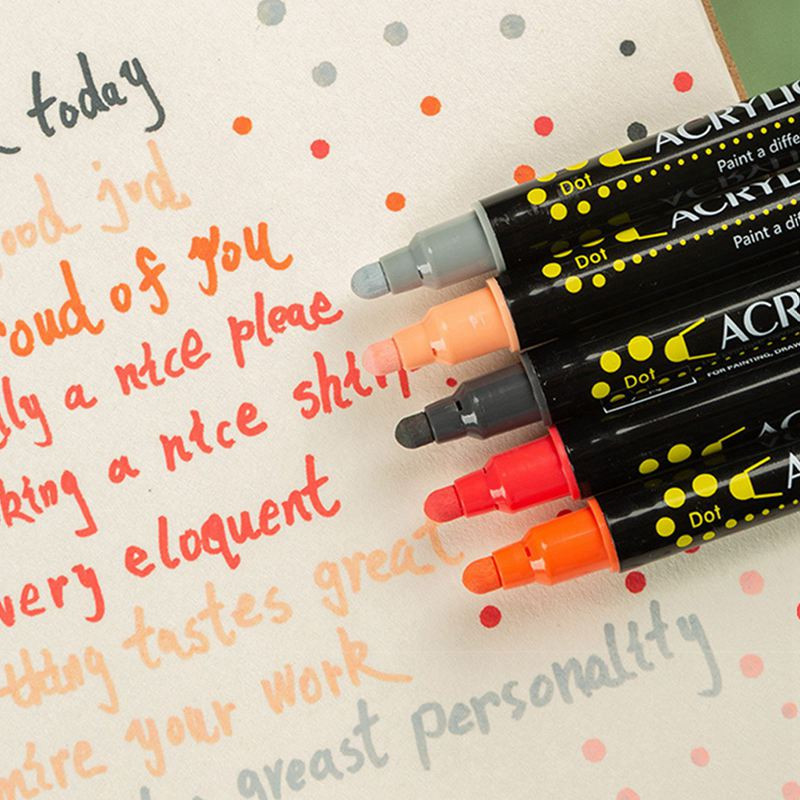 today
good jod
roud of you
lly a nice pleae
king a nice shirt
very eloquent
thing tastes great
mire your work
greast personality
Dot ACRYLIC
Paint a diffe
Dot ACRYLI
Paint a dif
Dot ACR
FOR PAINTING, DRAW
Dot A